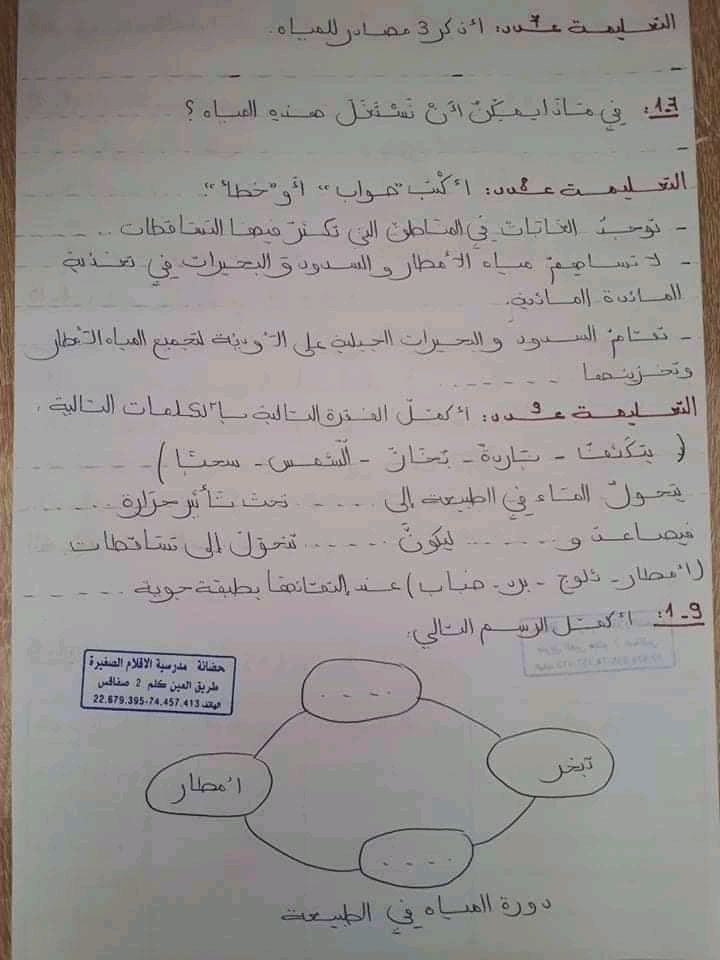 التعليمة عـ7ـدد: أذكر 3 مصادر للمياه.
1.7: في ماذا يمكن أن نستغل هذه المياه ؟
التعليمة عـ8ـدد: أكتب "صواب" أو "خطأ".
- توجد الغابات في المناطق التي تكثر فيها التساقطات . . . . .
- لا تساهم مياه الأمطار و السدود و البحيرات في تغذية
المائدة المائية.
- تقام السدود و البحيرات الجبلية على الأودية لتجميع المياه الأمطار
وتخزينها . . . . . .
التعليمة عـ9ـدد: أكمل الفقرة التالية بالكلمات التالية :
( يتكثف - باردة - بخار - الشمس - سحبا )
يتحول الماء في الطبيعة إلى . . . . . تحت تأثير حرارة . . . . .
فيصاعد و . . . . . . ليكون . . . . . . تتحول إلى تساقطات
(أمطار - ثلوج - برد - ضباب) عند التقائها بطبقة جوية . . . . .
9-1: أكمل الرسم التالي.
حضانة مدرسية الاقلام الصغيرة
طريق العين كلم 2 صفاقس
الهاتف 74.457.413-22.679.395
. . . .
تبخر
أمطار
. . . .
دورة المياه في الطبيعة